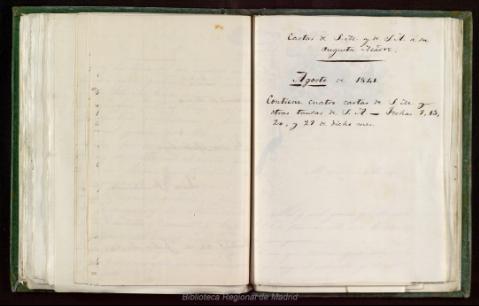 Cartas de S. M. y de S. A. a su
Augusta Madre.
Agosto de 1841
Contiene cuatro cartas de S. M. y
otras tantas de S. A — Fechas 7, 13,
20, y 27 de dicho mes.
Biblioteca Regional de Madrid